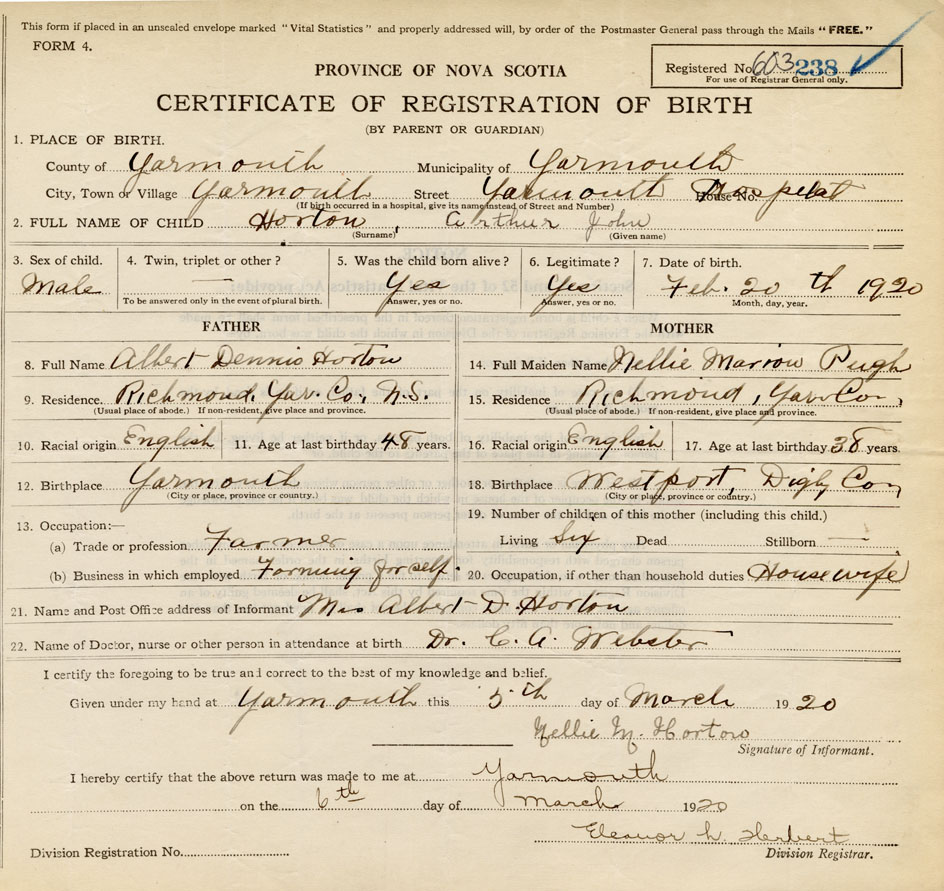 This form if placed in an unsealed envelope marked "Vital Statistics" and properly addressed will, by order of the Postmaster General pass through the Mails "FREE."
FORM 4.
Registered No. 603 238
For use of Registrar General only.
PROVINCE OF NOVA SCOTIA
CERTIFICATE OF REGISTRATION OF BIRTH
(BY PARENT OR GUARDIAN)
1. PLACE OF BIRTH.
County of Yarmouth Municipality of Yarmouth
City, Town or Village Yarmouth Street Yarmouth Hospital House No.
(If birth occurred in a hospital, give its name instead of Street and Number)
2. FULL NAME OF CHILD Horton, Arthur John
(Surname) (Given name)
3. Sex of child. 4. Twin, triplet or other? 5. Was the child born alive? 6. Legitimate? 7. Date of birth.
Male — Yes Yes Feb. 20th 1920
To be answered only in the event of plural birth. Answer, yes or no. Answer, yes or no. Month, day, year.
FATHER MOTHER
8. Full Name Albert Dennis Horton 14. Full Maiden Name Nellie Pugh
9. Residence. Richmond, Yar. Co., N.S. 15. Residence Richmond, Yar Co.,
(Usual place of abode.) If non-resident, give place and province. (Usual place of abode.) If non-resident, give place and province.
10. Racial origin English 11. Age at last birthday 48 years. 16. Racial origin English 17. Age at last birthday 38 years.
12. Birthplace Yarmouth 18. Birthplace Westport, Digby Co.,
(City or place, province or country.) (City or place, province or country.)
19. Number of children of this mother (including this child.)
13. Occupation:—
(a) Trade or profession Farmer Living Six Dead Stillborn —
(b) Business in which employed Farming for self. 20. Occupation, if other than household duties Housewife
21. Name and Post Office address of Informant Mrs Albert D. Horton
22. Name of Doctor, nurse or other person in attendance at birth Dr. C. A. Webster
I certify the foregoing to be true and correct to the best of my knowledge and belief.
Given under my hand at Yarmouth this 5th day of March 1920
Nellie M. Horton
Signature of Informant.
I hereby certify that the above return was made to me at Yarmouth
on the 6th day of March 1920
Eleanor L. Herbert
Division Registration No. Division Registrar.